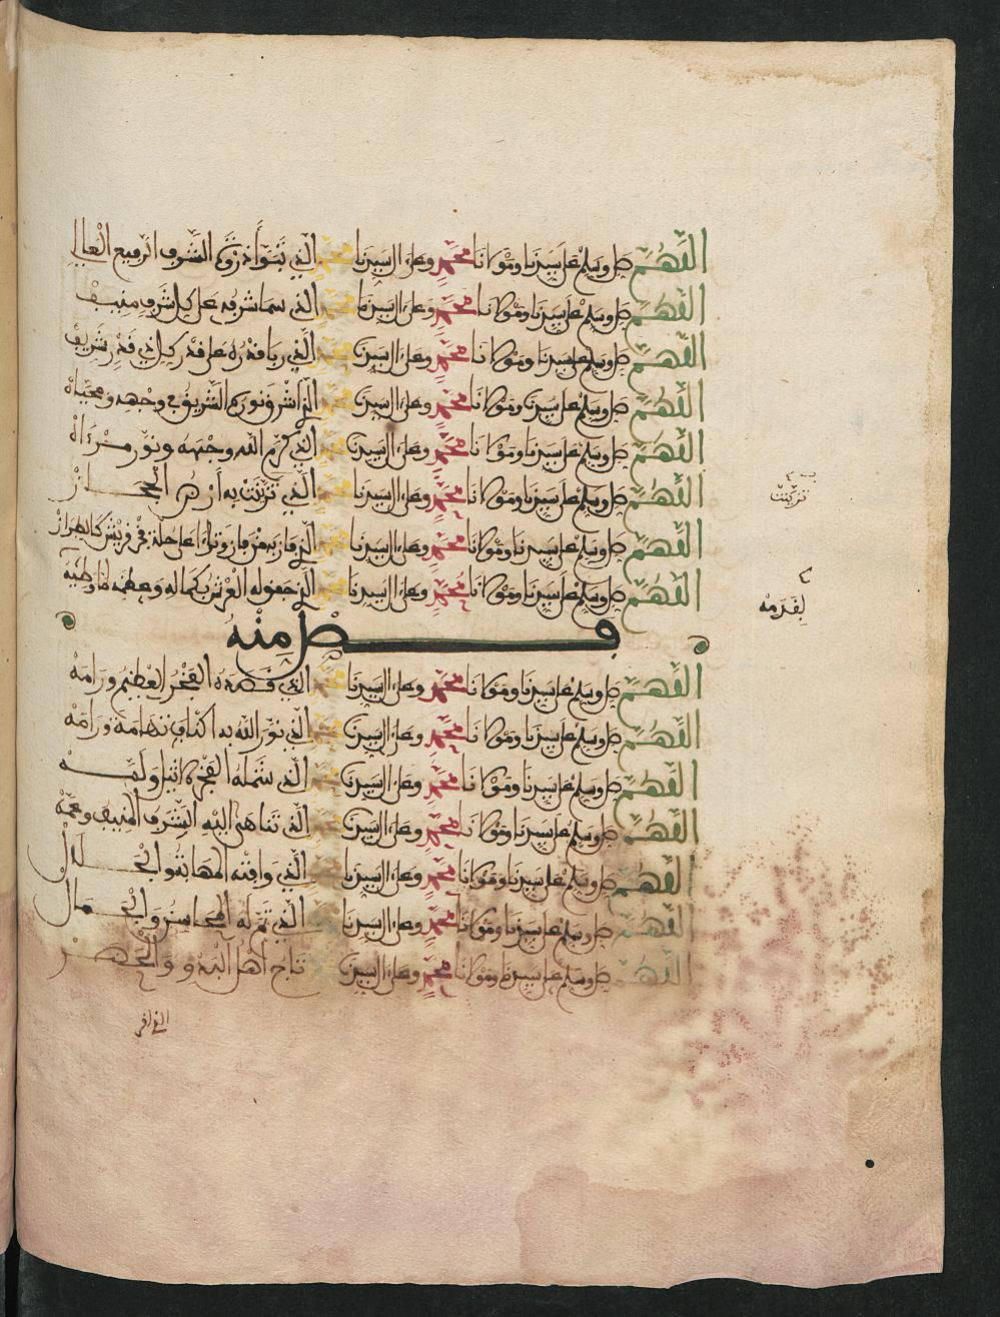 اللهم صل وسلم على سيدنا ومولانا محمد وعلى ال سيدنا محمد الذي تبوأ ذروة الشرف الرفيع العالي
اللهم صل وسلم على سيدنا ومولانا محمد وعلى ال سيدنا محمد الذي سما شرفه على كل شرف منيف
اللهم صل وسلم على سيدنا ومولانا محمد وعلى ال سيدنا محمد الذي ربا قدره على قدر كل ذي قدر شريف
اللهم صل وسلم على سيدنا ومولانا محمد وعلى ال سيدنا محمد الذي اشرق نوره الشريف في وجهه ومحياه
اللهم صل وسلم على سيدنا ومولانا محمد وعلى ال سيدنا محمد الذي كرم الله وجهه ونور مرءاه
اللهم صل وسلم على سيدنا ومولانا محمد وعلى ال سيدنا محمد الذي تزينت به أرض الحجاز
تزينت
اللهم صل وسلم على سيدنا ومولانا محمد وعلى ال سيدنا محمد الذي فاز به من فاز على حلة فخر قريش كالطراز
اللهم صل وسلم على سيدنا ومولانا محمد وعلى ال سيدنا محمد الذي العرش بكماله وعظمه
لقدمه
فصل منه
اللهم صل وسلم على سيدنا ومولانا محمد وعلى ال سيدنا محمد الذي قصده الفخر العظيم ورامه
اللهم صل وسلم على سيدنا ومولانا محمد وعلى ال سيدنا محمد الذي نور الله به اكناف تهامة ورامة
اللهم صل وسلم على سيدنا ومولانا محمد وعلى ال سيدنا محمد الذي شمله الفخر
اللهم صل وسلم على سيدنا ومولانا محمد وعلى ال سيدنا محمد الذي تناهى اليه الشرف المنيف وعمه
اللهم صل وسلم على سيدنا ومولانا محمد وعلى ال سيدنا محمد الذي وافته المهابة والجلال
اللهم صل وسلم على سيدنا ومولانا محمد وعلى ال سيدنا محمد الذي تم له المحاسن والجمال
اللهم صل وسلم على سيدنا ومولانا محمد وعلى ال سيدنا محمد تاج اهل البدو والحضر